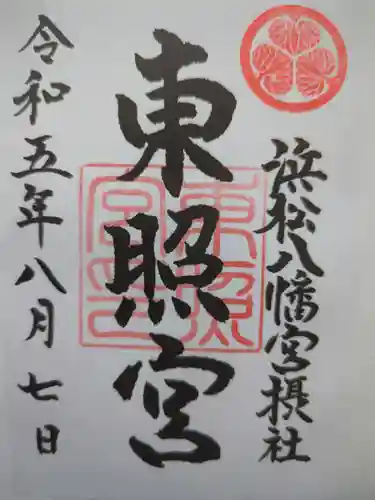 浜松八幡宮摂社
東照宮
令和五年八月七日
東照宮印